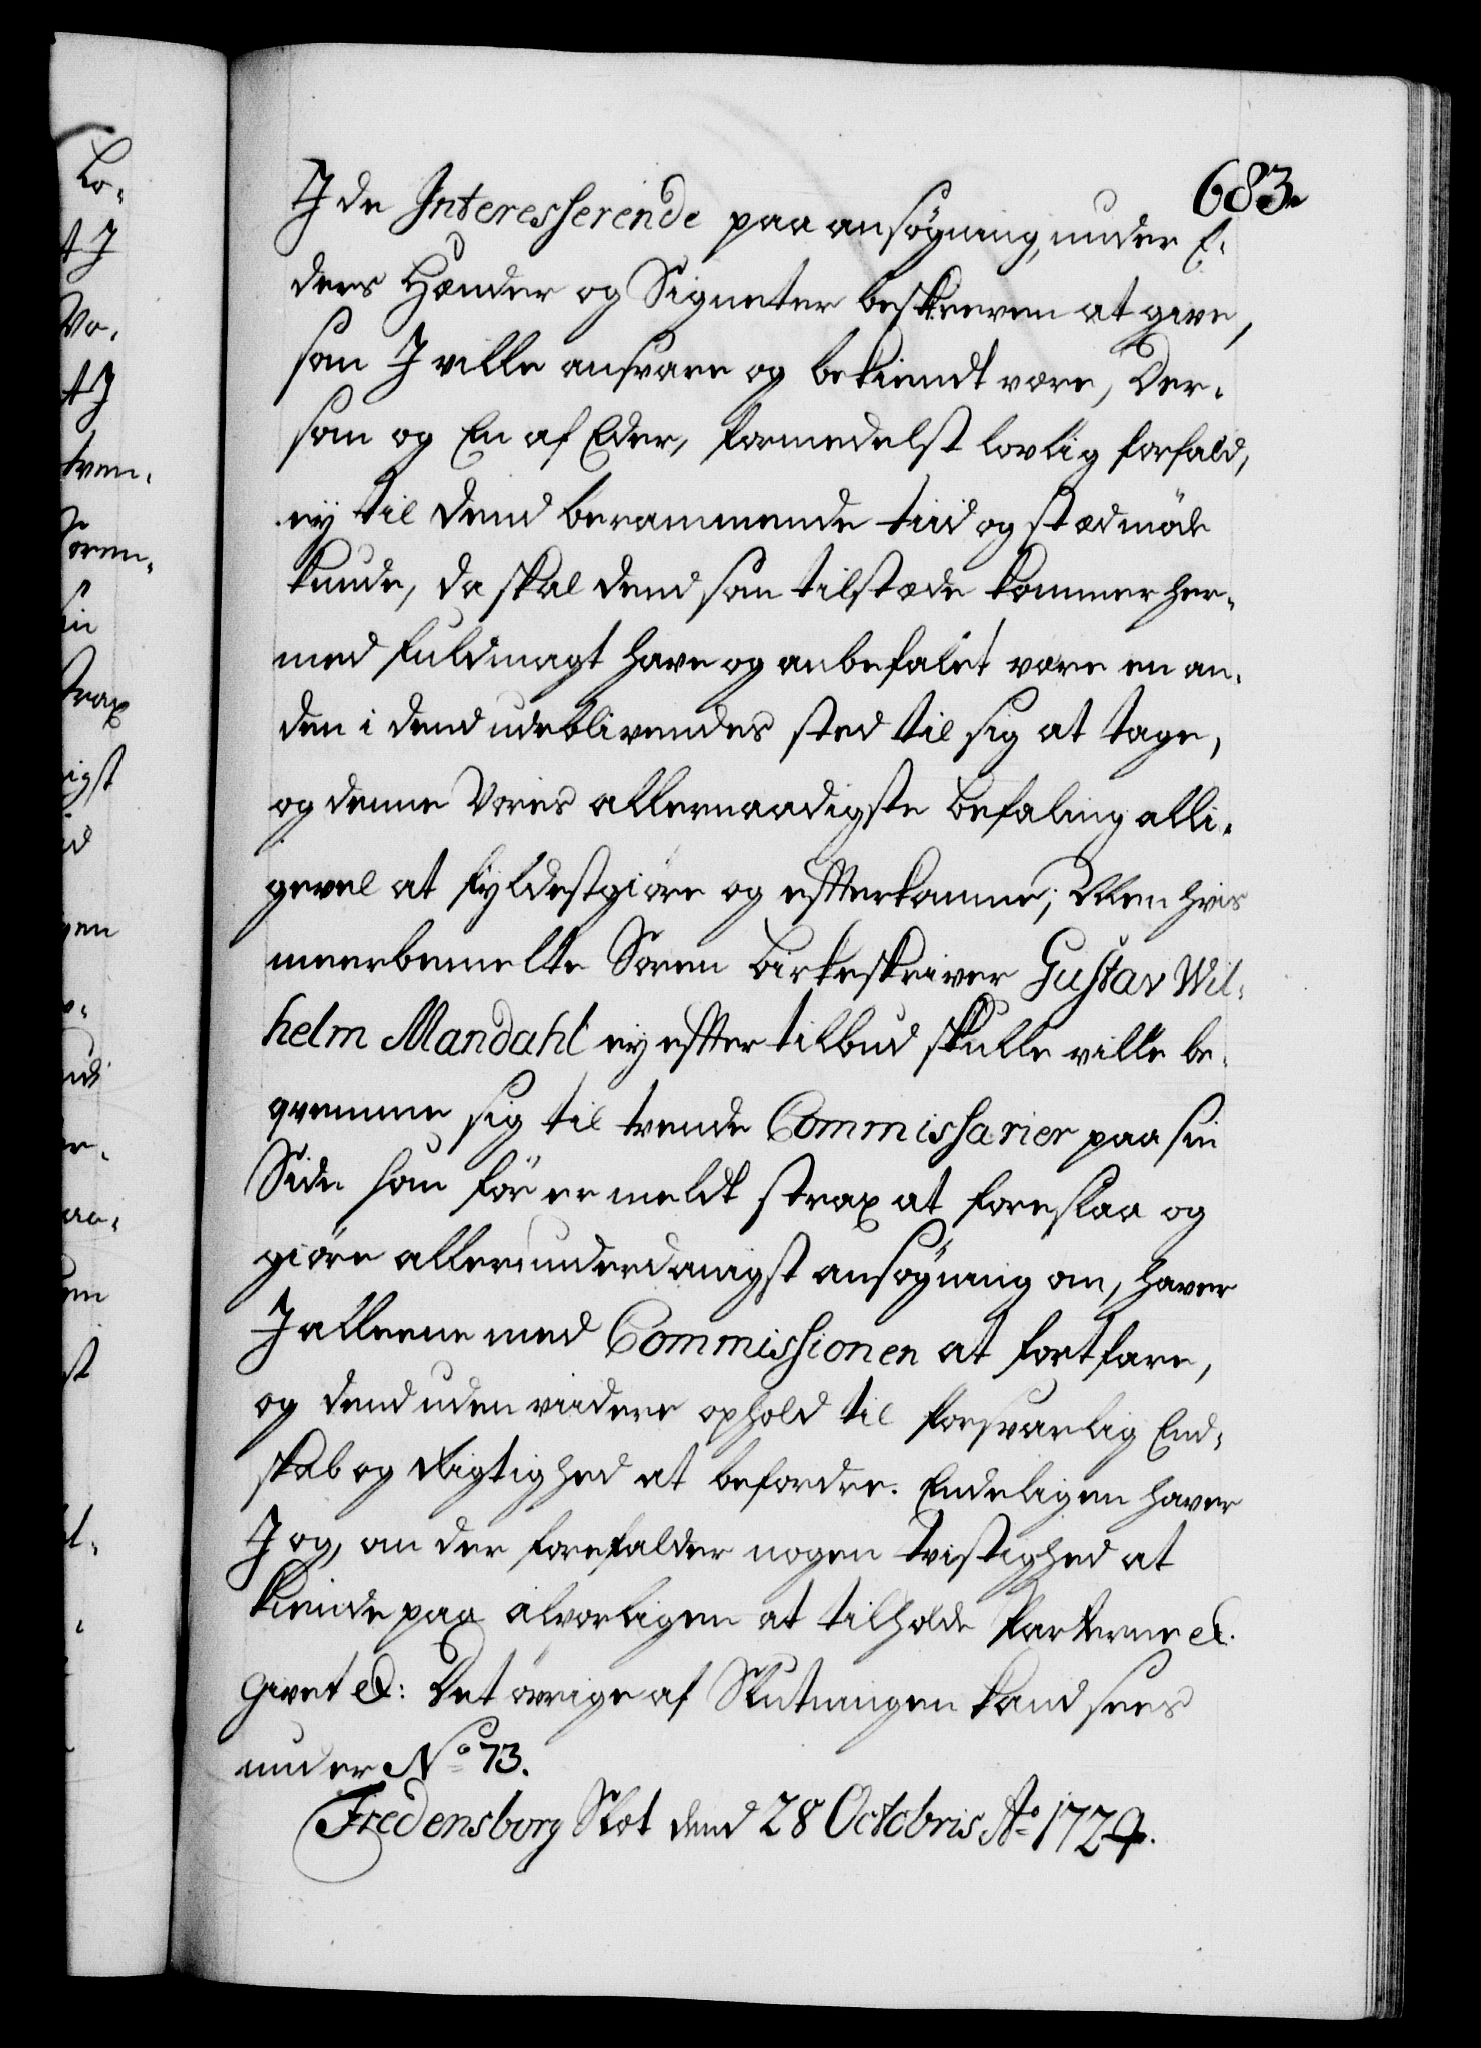 683.
I de Interesserende paa ansøgning, under E-
ders Hænder og Signeter beskreven at give,
som I ville ansvare og bekiendt være, Der-
som og En af Eder, formedelst lovlig forfald,
ey til dend berammende tiid og stæd møde
kunde, da skal dend som tilstæde kommer her-
med fuldmagt have og anbefalet være en an-
den i dend udeblivendes sted til sig at tage,
og denne Vores allernaadigste befaling alli-
gevel at fyldestgiøre og efterkomme; Men hvis
meerbemelte Soren Birkeskriver Gustav Wil-
helm Mandahl ey efter tilbud skulle ville be-
qvemme sig til trende Commissarier paa sin
Side som før er meldt strax at foreslaa og
giøre allerunderdanigst ansøgning om, haver
I alleene med Commissionen at fortfare,
og dend uden viidere ophold til forsvarlig End-
skab og Rigtighed at befordre. Endeligen haver
I og, om der forefalder nogen tvistighed at
kiende paa alvorligen at tilholde Parterne &.
Givet &: Det øvrige af Slutningen kand sees
under No 73.
Fredensborg Slot dend 28 Octobris Ao 1724.